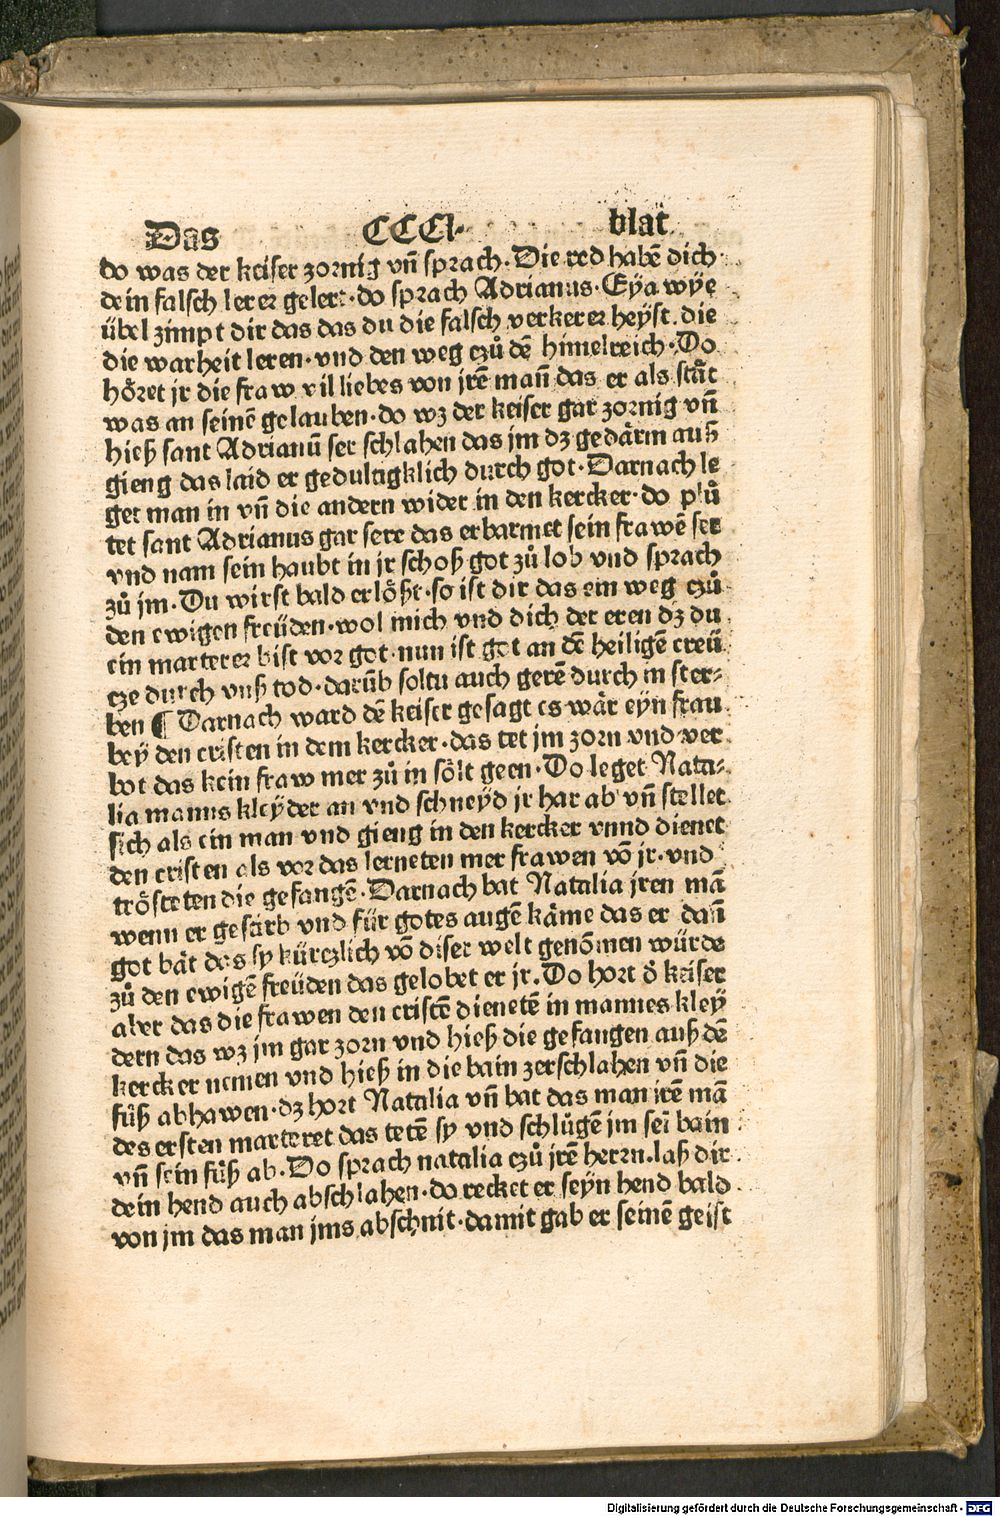 Das CCCl· blat
do was der keiser zornig vñ sprach·Die red habē dich
dein falsch lerer gelert·do sprach Adrianus·Eya wye
übel zimpt dir das das du die falsch verkerer heyst die
die warheit leren·vnd den weg czů dē himelreich·Do
höret jr die fraw vil liebes von jrē mañ das er als stät
was an seinē gelauben·do wz der keiser gar zornig vñ
hieß sant Adrianū ser schlahen das jm dz gedärm auß
gieng das laid er gedultigklich durch got·Darnach le
get man in vñ die andern wider in den kercker·do plů
tet sant Adrianus gar sere das erbarmet sein frawē ser
vnd nam sein haubt in jr schoß got zů lob vnd sprach
zů jm·Du wirst bald erlößt·so ist dir das ein weg czů
den ewigen freüden·wol mich vnd dich der eren dz du
ein marterer bist vor got·nun ist got an dē heiligē creü
cze durch vnß tod·darūb soltu auch gerē durch in ster-
ben ¶ Darnach ward dē keiser gesagt es wär eyn frau
bey den cristen in dem kercker·das tet jm zorn vnd ver
bot das kein fraw mer zů in sölt geen·Do leget Nata-
lia manns kleyder an vnd schneyd jr har ab vñ stellet
sich als ein man vnd gieng in den kercker vnnd dienet
den cristen als vor das lerneten mer frawen vō jr·vnd
trösteten die gefangē·Darnach bat Natalia jren mā
wenn er gestarb vnd für gotes augē käme das er dañ
got bät das sy kürczlich vō diser welt genōmen würde
zů den ewigē freüden das gelobet er jr.Do hort ð keiser
aber das die frawen den cristē dienetē in mannes kley
dern das wz jm gar zorn vnd hieß die gefangen auß dē
kercker nemen vnd hieß in die bain zerschlahen vñ die
füß abhawen·dz hort Natalia vñ bat das man jrē mā
des ersten marteret das tetē sy vnd schlůgē jm sei bain
vñ sein füß ab·Do sprach natalia czů jrē herrn·laß dir
dein hend auch abschlahen·do recket er seyn hend bald
von jm das man jms abschnit·damit gab er seinē geist
Digitalisierung gefördert durch die Deutsche Forschungsgemeinschaft - DFG